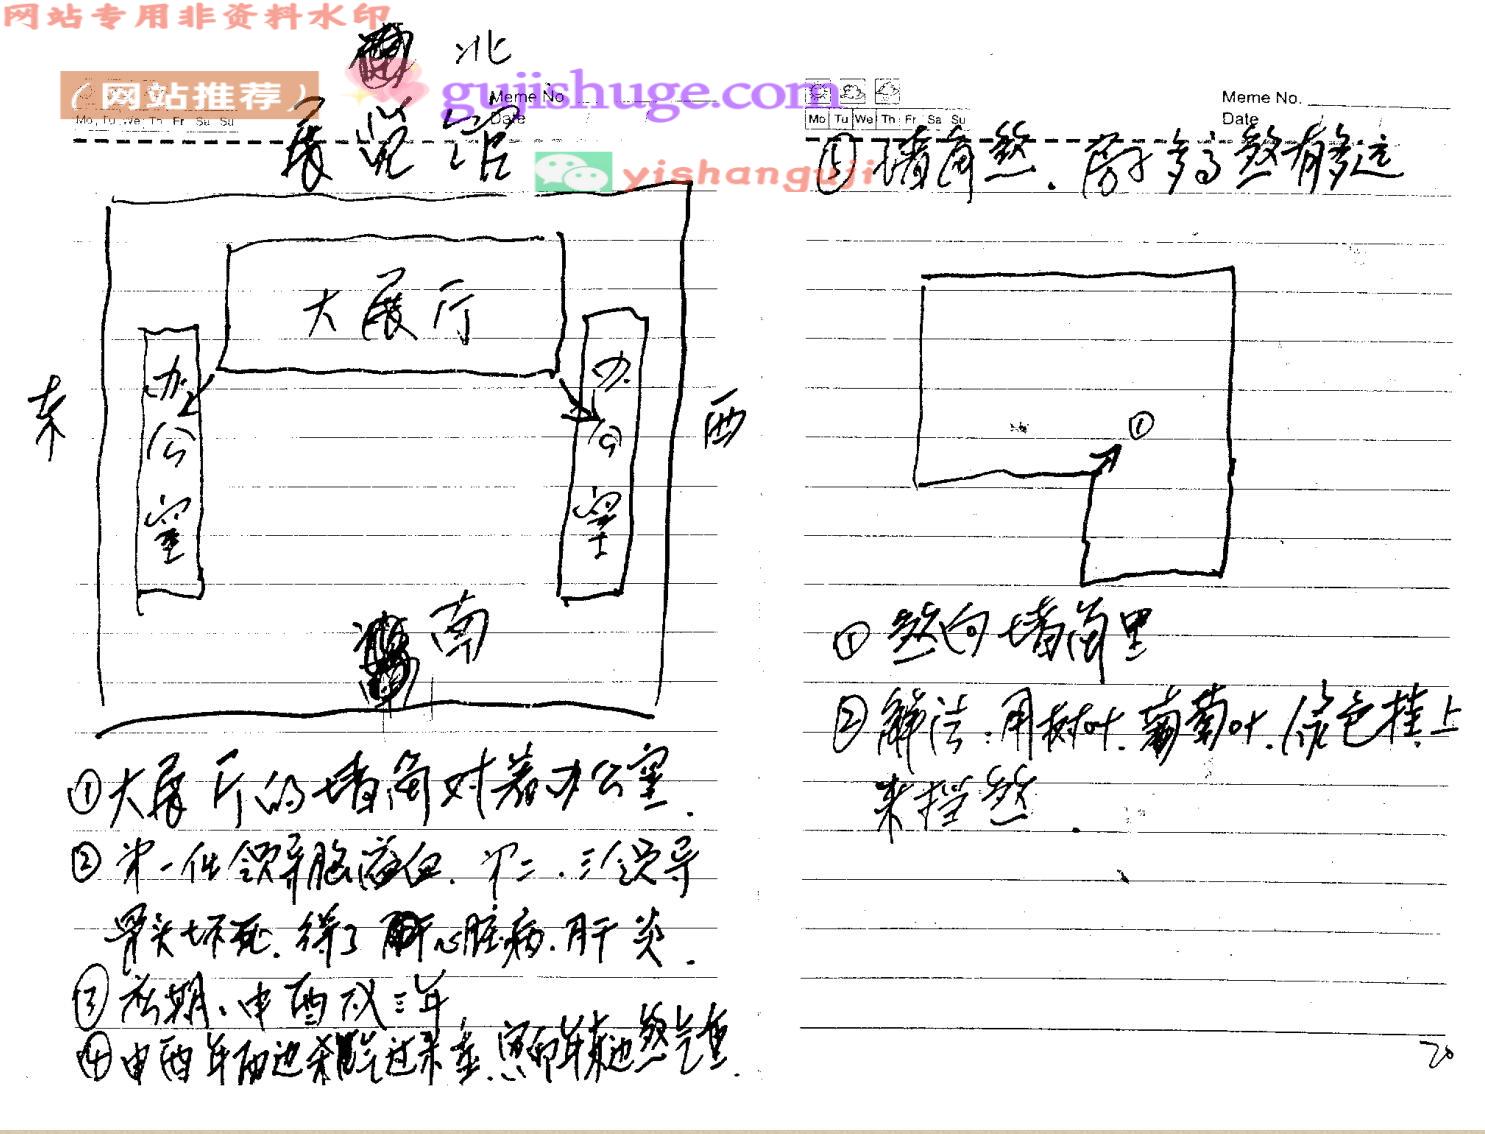 网站专用非资料水印
北
(网站推荐)
guijishuge.com
Meme No
Mo Tu We Th Fr Sa Su
Date
展览馆
yishanguji
大展厅
办公室
办公室
东
西
南
①大展厅的墙角对着办公室.
②第一任领导脑溢血.第二.三领导
骨头坏死.得了心脏病.肝炎.
③应期、申酉戌三年
④申酉年西边杀气过来重.寅卯年东边煞气重.
Meme No.
Mo Tu We Th Fr Sa Su
Date
⑤墙角煞.房子多高煞有多远
①
①煞向墙角里
②解法:用树叶.葡萄叶.绿色挂上
来挡煞.
20